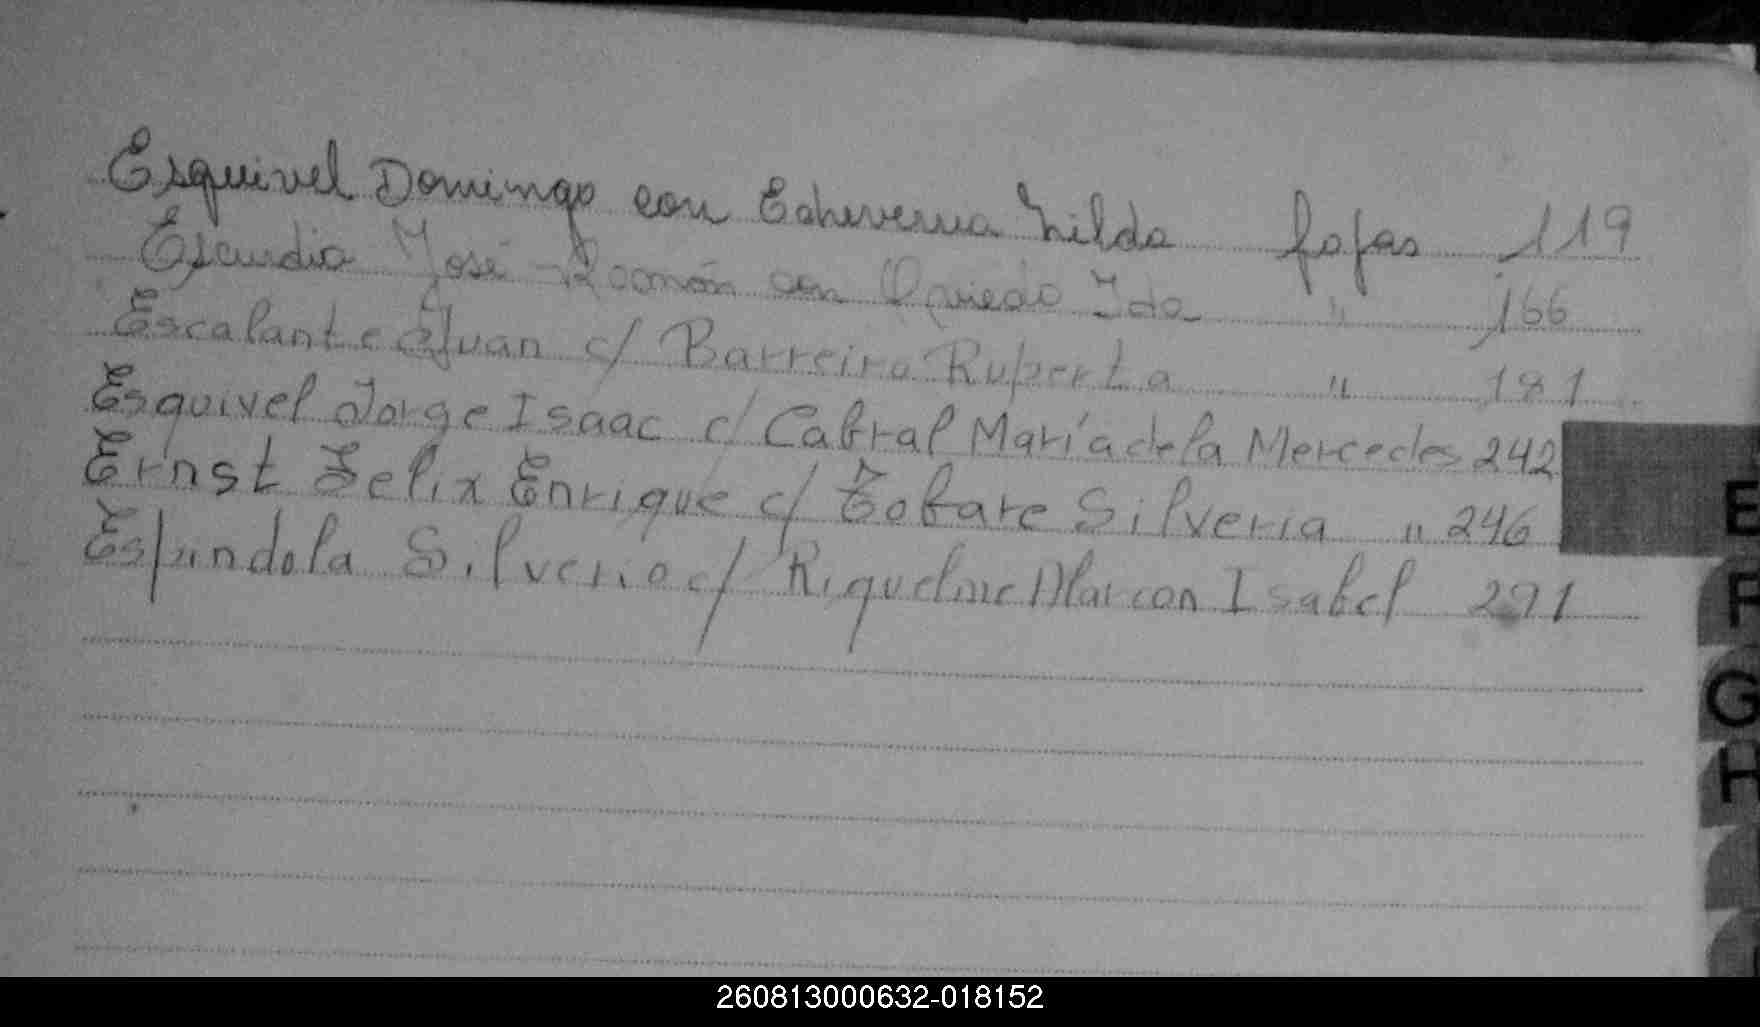 Esquivel Domingo con Echeverria Hilda fojas 119
Escurdia José Román con Oviedo Ida " 166
Escalante Juan c/ Barreiro Ruperta " 181
Esquivel Jorge Isaac c/ Cabral María de la Mercedes 242
Ernst Felix Enrique c/ Tobare Silveria " 246
Espindola Silverio c/ Riquelme Alarcon Isabel 291
E
F
G
H
260813000632-018152